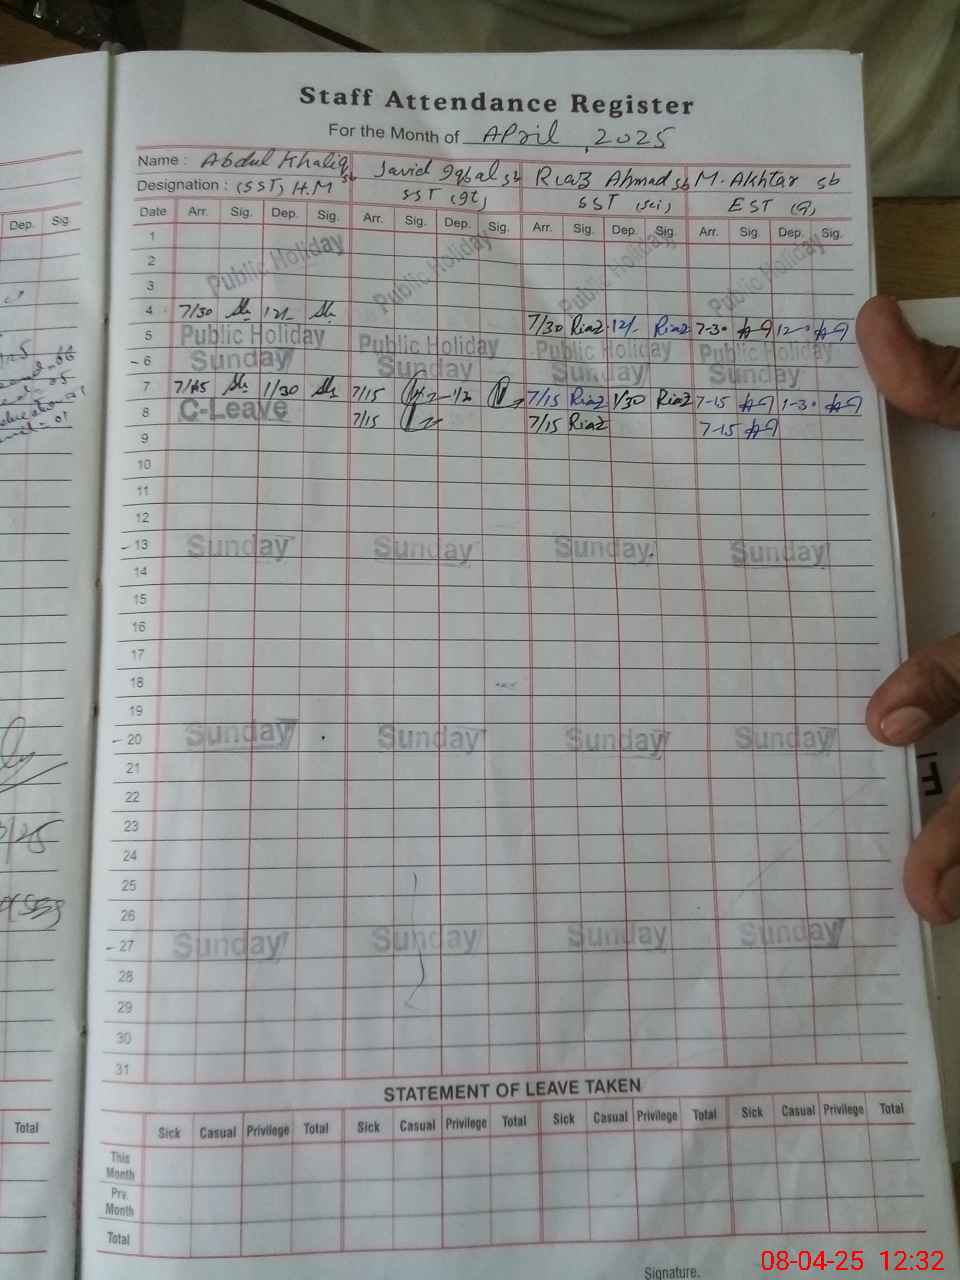 Staff Attendance Register
For the Month of April, 2025
Name : Abdul Khaliq sb Javid Iqbal sb Riaz Ahmad sb M. Akhtar sb
Designation : (SST) H.M SST (gt) SST (sci) EST (G)
Dep. Sig. Date Arr. Sig. Dep. Sig. Arr. Sig. Dep. Sig. Arr. Sig. Dep. Sig. Arr. Sig. Dep. Sig.
1
2 Public Holiday Public Holiday Public Holiday Public Holiday
3
4 7/30 12/- 7/30 Riaz 12/- Riaz 7-30 12-0
5 Public Holiday Public Holiday Public Holiday Public Holiday
- 6 Sunday Sunday Sunday Sunday
7 7/15 1/30 7/15 7/15 Riaz 1/30 Riaz 7-15 1-30
8 C-Leave 7/15 7/15 Riaz 7-15
9
10
11
12
- 13 Sunday Sunday Sunday Sunday
14
15
16
17
18
19
- 20 Sunday Sunday Sunday Sunday
21
22
23
24
25
26
- 27 Sunday Sunday Sunday Sunday
28
29
30
31
STATEMENT OF LEAVE TAKEN
Total Sick Casual Privilege Total Sick Casual Privilege Total Sick Casual Privilege Total Sick Casual Privilege Total
This Month
Prv. Month
Total
Signature.
08-04-25 12:32